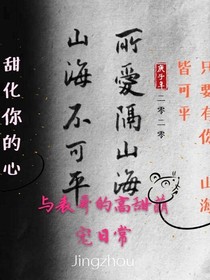 只要有你 山海
皆可平
庚子年
二零二零
所愛隔山海
山海不可平
甜化你的心
与表哥的高甜
日常
Jingzhou